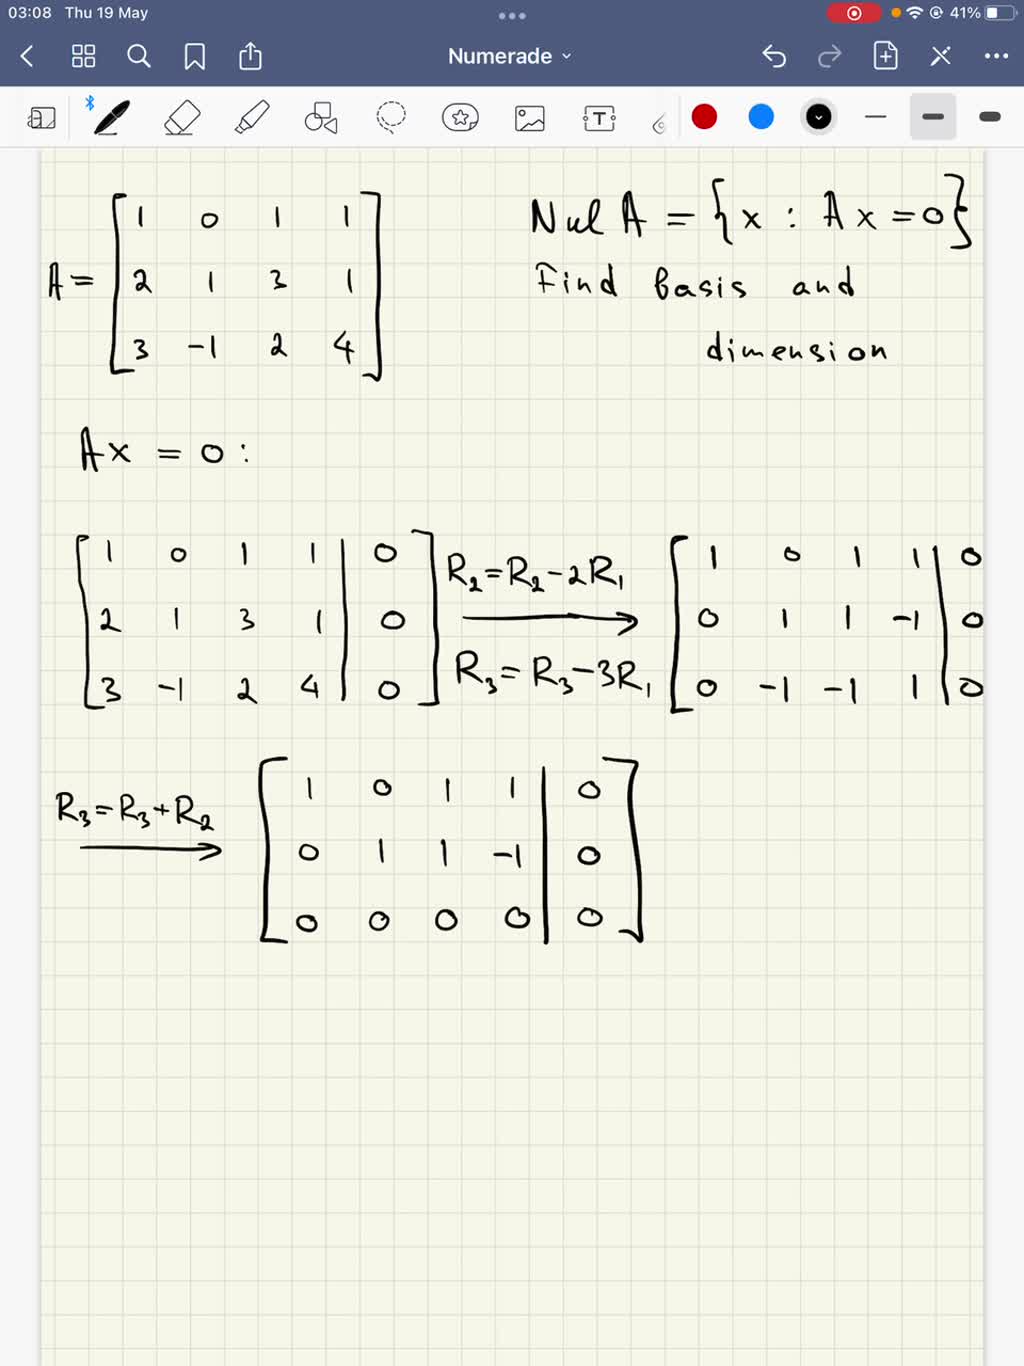 03:08 Thu 19 May 41%
Numerade
A = [ 1 0 1 1
2 1 3 1
3 -1 2 4 ]
Nul A = { x : Ax = 0 }
Find basis and
dimension
Ax = 0 :
[ 1 0 1 1 | 0
2 1 3 1 | 0
3 -1 2 4 | 0 ]
R₂=R₂-2R₁
R₃=R₃-3R₁
[ 1 0 1 1 | 0
0 1 1 -1 | 0
0 -1 -1 1 | 0
R₃=R₃+R₂
[ 1 0 1 1 | 0
0 1 1 -1 | 0
0 0 0 0 | 0 ]